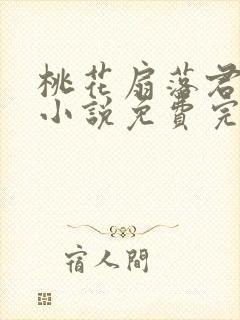 桃花扇落君
小説免費完
宿人間